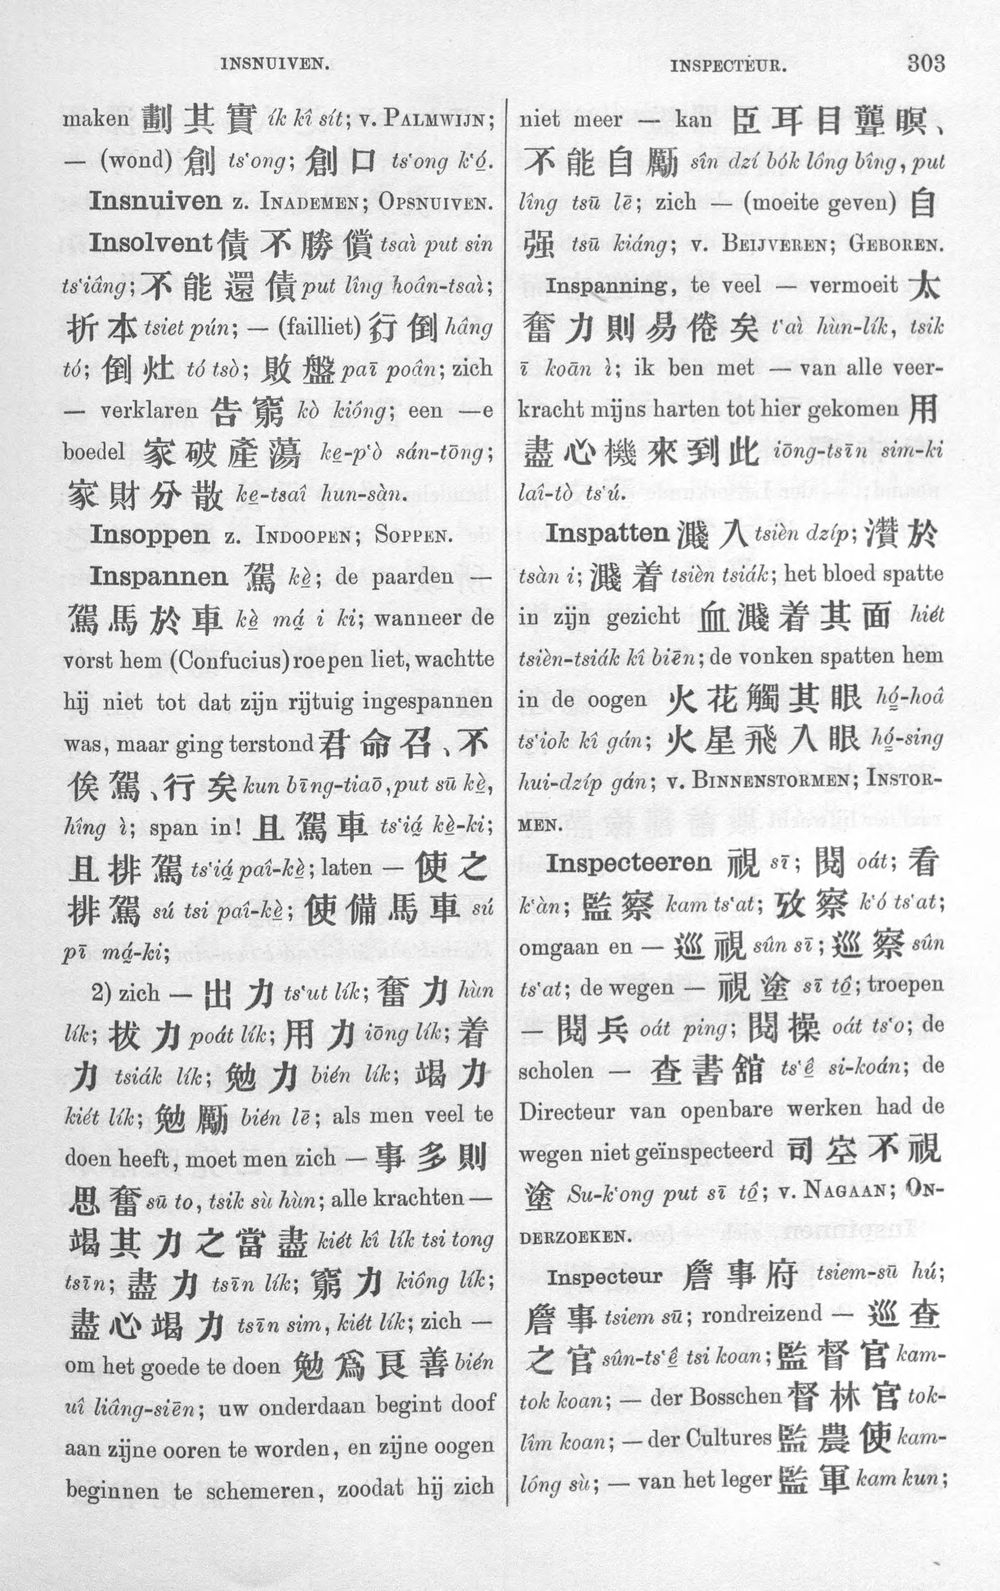 INSNUIVEN.
INSPECTEUR.
303
maken 劃其實 ík kî sít; v. PALMWIJN;
— (wond) 創 tsʻong; 創口 tsʻong kʻó.
Insnuiven z. INADEMEN; OPSNUIVEN.
Insolvent 債不勝償 tsaì put sin
tsʻiâng; 不能還債 put lîng hoân-tsaì;
折本 tsiet pún; — (failliet) 行倒 hâng
tó; 倒灶 tó tsò; 敗盤 paī poân; zich
— verklaren 告窮 kò kióng; een —e
boedel 家破產蕩 ke-pʻò sán-tōng;
家財分散 ke-tsaî hun-sàn.
Insoppen z. INDOOPEN; SOPPEN.
Inspannen 駕 kè; de paarden —
駕馬於車 kè má i ki; wanneer de
vorst hem (Confucius) roepen liet, wachtte
hij niet tot dat zijn rijtuig ingespannen
was, maar ging terstond 君命召、不
俟駕、行矣 kun bīng-tiaō, put sū kè,
hîng ì; span in! 且駕車 tsʻiá kè-ki;
且排駕 tsʻiá paî-kè; laten — 使之
排駕 sú tsi paî-kè; 使備馬車 sú
pī má-ki;
2) zich — 出力 tsʻut lík; 奮力 hùn
lík; 拔力 poát lík; 用力 iōng lík; 着
力 tsiák lík; 勉力 bién lík; 竭力
kiét lík; 勉勵 bién lē; als men veel te
doen heeft, moet men zich — 事多則
思奮 sū to, tsik sù hùn; alle krachten —
竭其力之當盡 kiét kî lík tsi tong
tsīn; 盡力 tsīn lík; 窮力 kióng lík;
盡心竭力 tsīn sim, kiét lík; zich —
om het goede te doen 勉爲良善 bién
uî liâng-siēn; uw onderdaan begint doof
aan zijne ooren te worden, en zijne oogen
beginnen te schemeren, zoodat hij zich
niet meer — kan 臣耳目聾瞑、
不能自勵 sîn dzí bók lông bîng, put
lîng tsū lē; zich — (moeite geven) 自
强 tsū kiáng; v. BEIJVEREN; GEBOREN.
Inspanning, te veel — vermoeit 太
奮力則易倦矣 tʻaì hùn-lík, tsik
ī koān ì; ik ben met — van alle veer-
kracht mijns harten tot hier gekomen 用
盡心機來到此 iōng-tsīn sim-ki
laî-tò tsʻú.
Inspatten 濺入 tsièn dzíp; 濽於
tsàn i; 濺着 tsièn tsiák; het bloed spatte
in zijn gezicht 血濺着其面 hiét
tsièn-tsiák kî biēn; de vonken spatten hem
in de oogen 火花觸其眼 hó-hoâ
tsʻiok kî gán; 火星飛入眼 hó-sing
hui-dzíp gán; v. BINNENSTORMEN; INSTOR-
MEN.
Inspecteeren 視 sī; 閱 oát; 看
kʻàn; 監察 kam tsʻat; 攷察 kʻó tsʻat;
omgaan en — 巡視 sûn sī; 巡察 sûn
tsʻat; de wegen — 視塗 sī tô; troepen
— 閱兵 oát ping; 閱操 oát tsʻo; de
scholen — 查書舘 tsʻê si-koán; de
Directeur van openbare werken had de
wegen niet geïnspecteerd 司空不視
塗 Su-kʻong put sī tô; v. NAGAAN; ON-
DERZOEKEN.
Inspecteur 詹事府 tsiem-sū hú;
詹事 tsiem sū; rondreizend — 巡查
之官 sûn-tsʻê tsi koan; 監督官 kam-
tok koan; — der Bosschen 督林官 tok-
lîm koan; — der Cultures 監農使 kam-
lóng sù; — van het leger 監軍 kam kun;